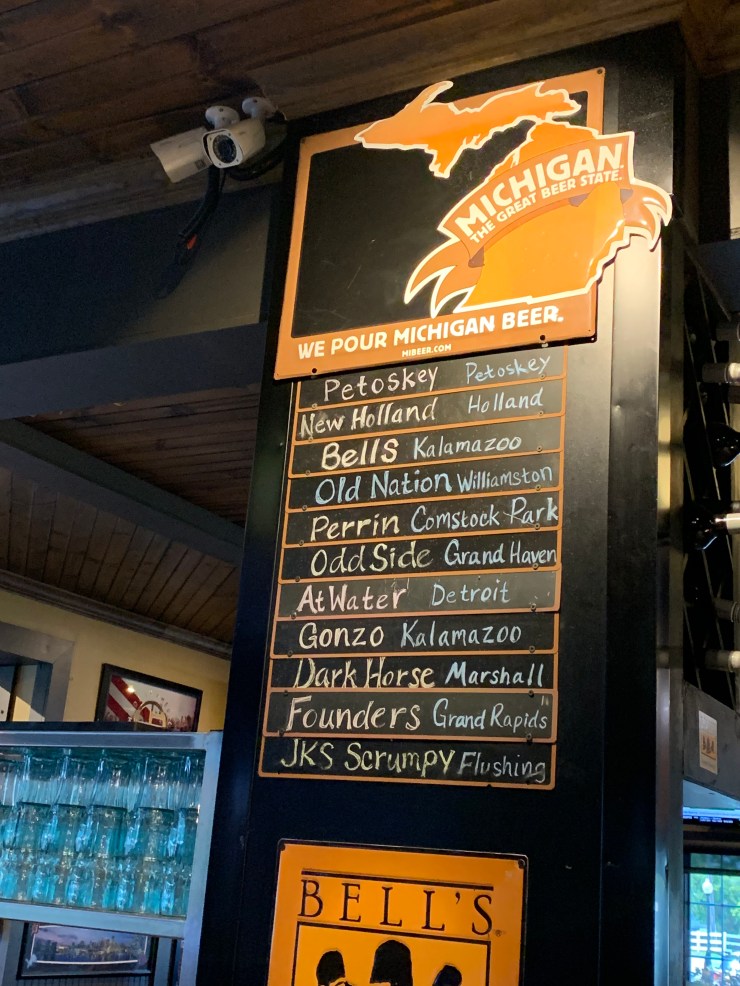 MICHIGAN
THE GREAT BEER STATE.
WE POUR MICHIGAN BEER.
MIBEER.COM
Petoskey Petoskey
New Holland Holland
Bells Kalamazoo
Old Nation Williamston
Perrin Comstock Park
Odd Side Grand Haven
AtWater Detroit
Gonzo Kalamazoo
Dark Horse Marshall
Founders Grand Rapids
JKS Scrumpy Flushing
BELL'S